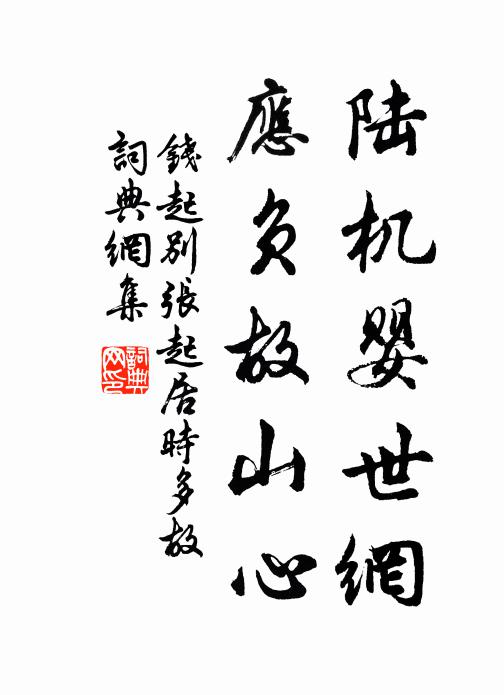 陆机婴世網
應負故山心
錢起別張起居時多故
詞典網集
詞典
网印